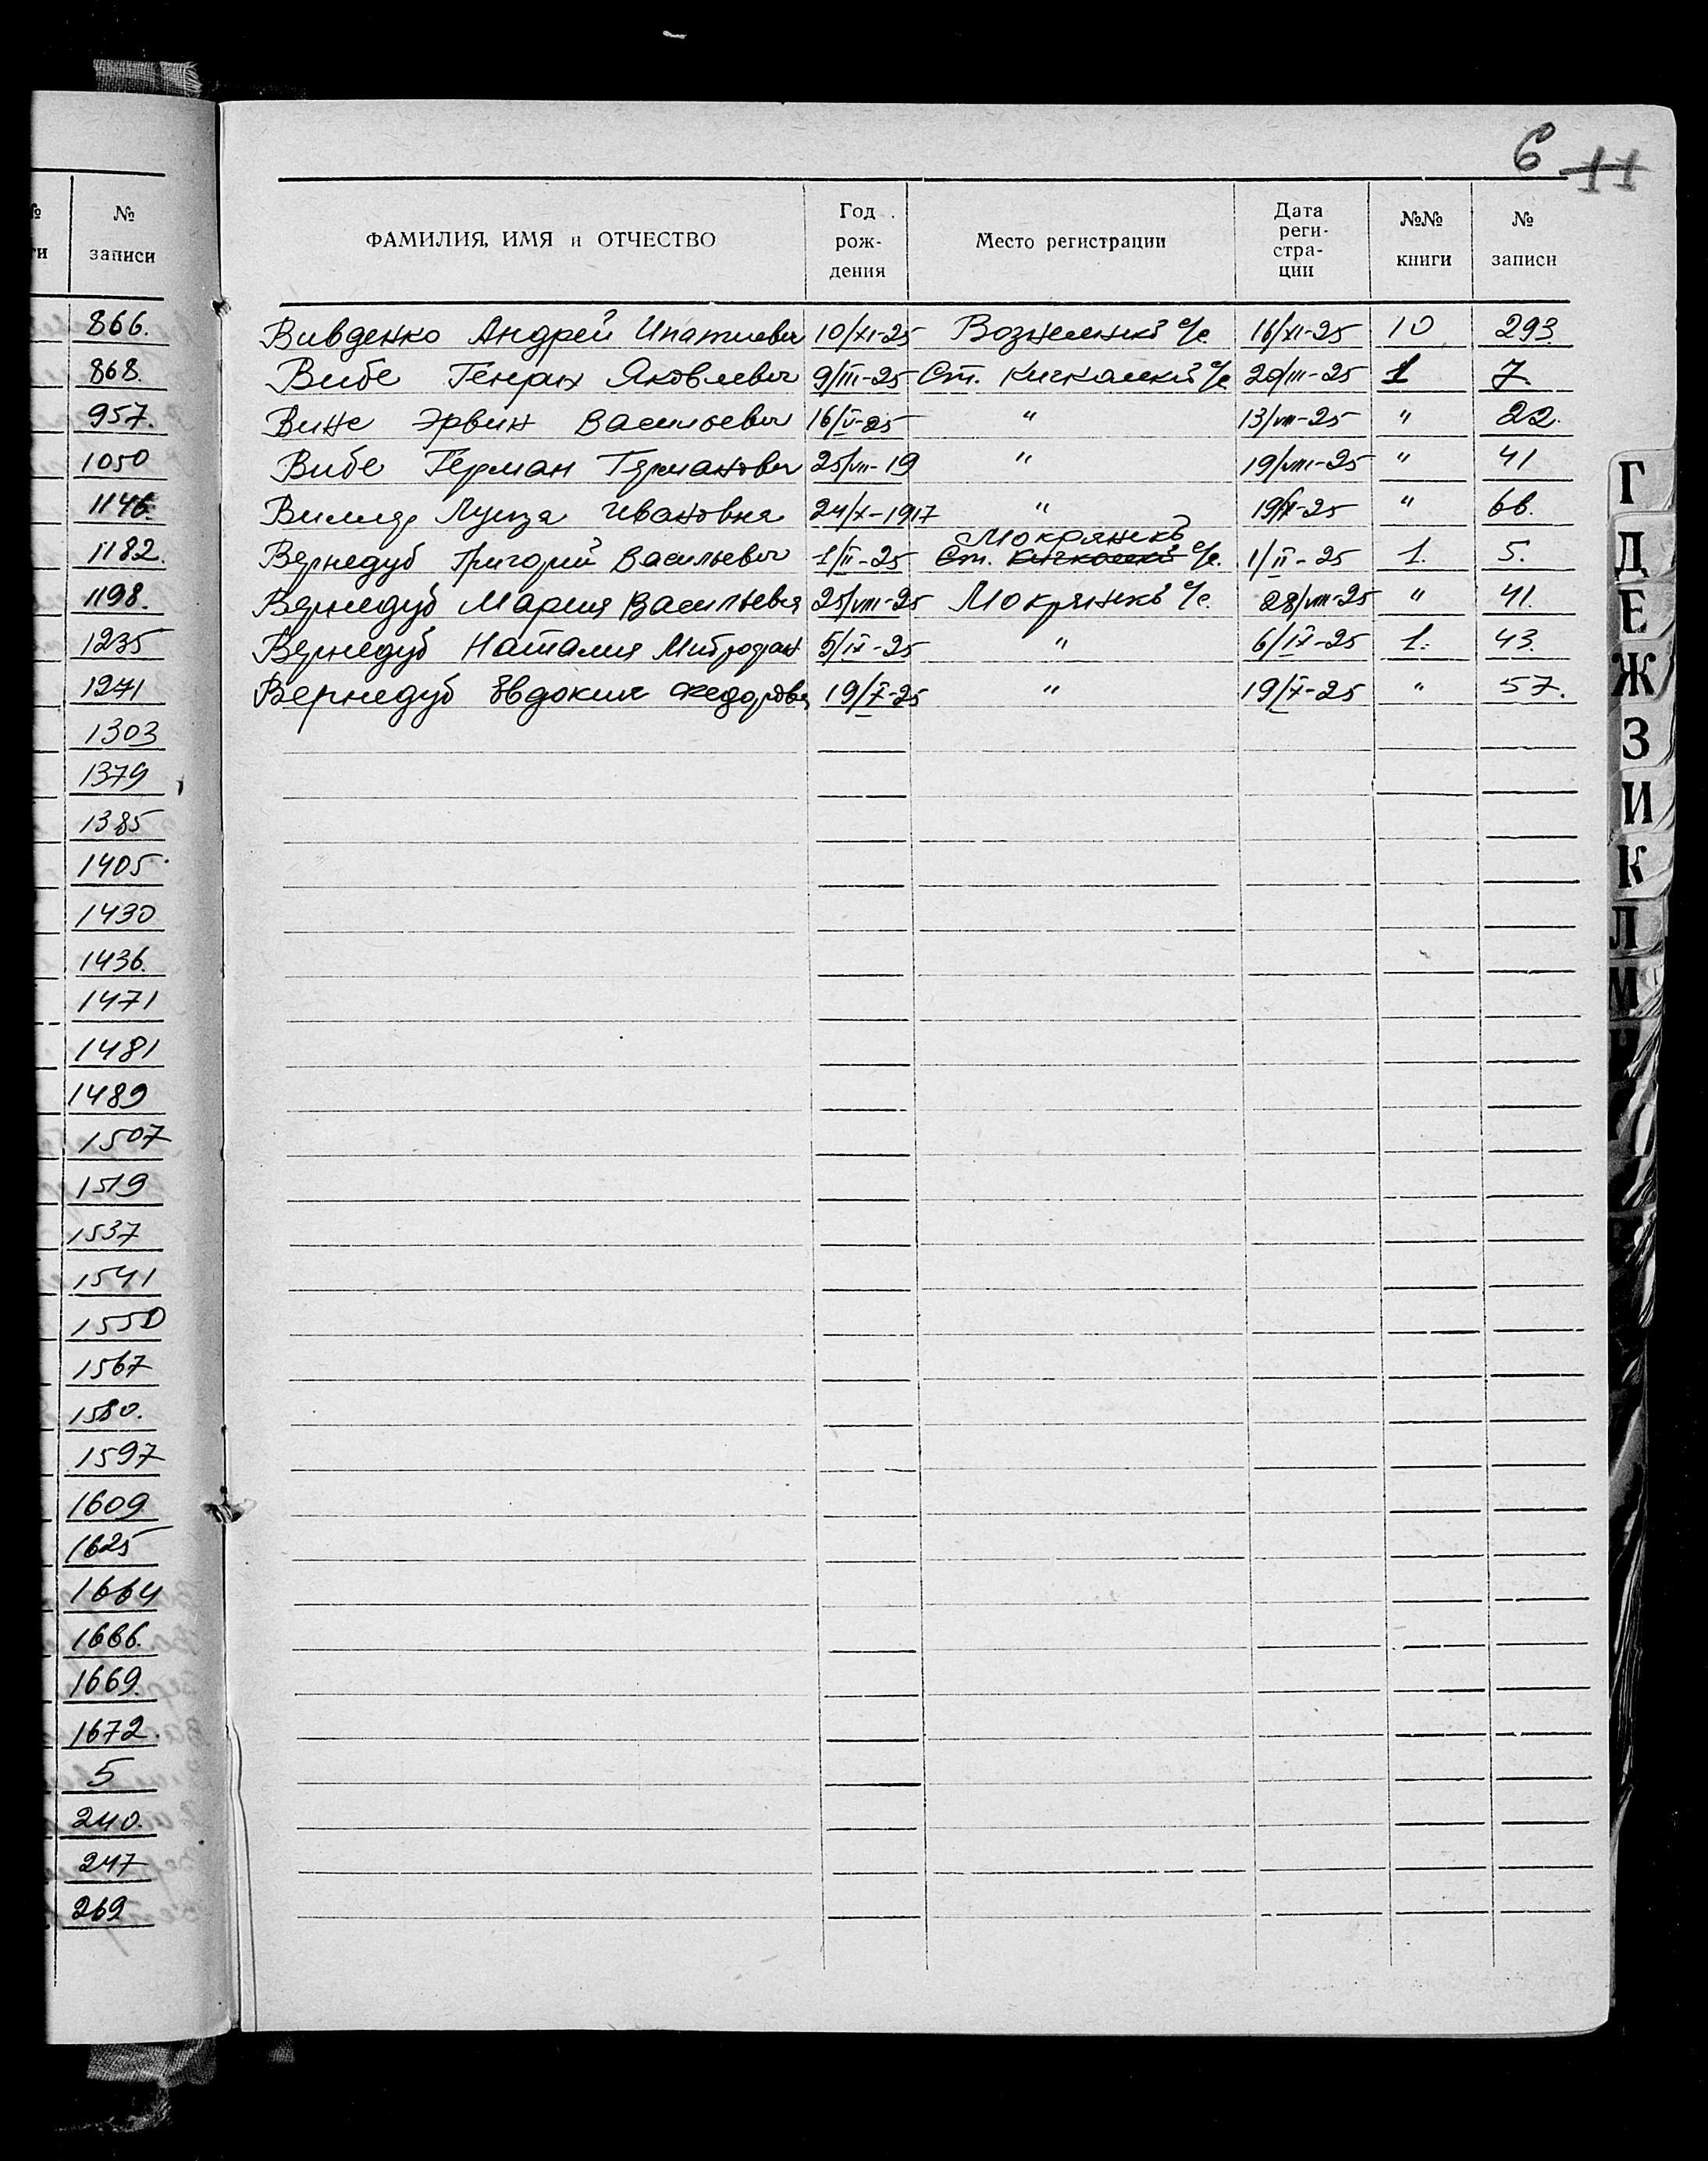 6 11
№ записи
ФАМИЛИЯ, ИМЯ и ОТЧЕСТВО Год рождения Место регистрации Дата регистрации №№ книги № записи
866. Вивденко Андрей Ипатиевич 10/XI-25 с/с 16/XI-25 10 293
868. Вибе Генрих Яковлевич 9/III-25 Ст. Кичкаский с/с 20/III-25 1 7.
957. Вине Эрвин Васильевич 16/V-25 " 13/VII-25 " 22.
1050 Вибе Герман Германович 25/VII-19 " 19/VIII-25 " 41
1146. Луиза Ивановна 24/X-1917 " " 66.
Мокрянск
1182. Вернедуб Григорий Васильевич 1/II-25 Ст. Кичкаский с/с. 1/II-25 1. 5.
1198. Вернедуб Мария Васильевна 25/VIII-25 Мокрянск с/с. 28/VIII-25 " 41.
1235 Вернедуб Наталия Митрофан 5/IX-25 " 6/IX-25 1. 43.
1271 Вернедуб Евдокия Федоровна 19/X-25 " 19/X-25 " 57.
1303
1379
1385
1405
1430
1436.
1471
1481
1489
1507
1519
1537
1541
1550
1567
1580.
1597
1609
1625
1664
1666.
1669.
1672.
5
240.
247
269
Г
Д
Е
Ж
З
И
К
Л
М